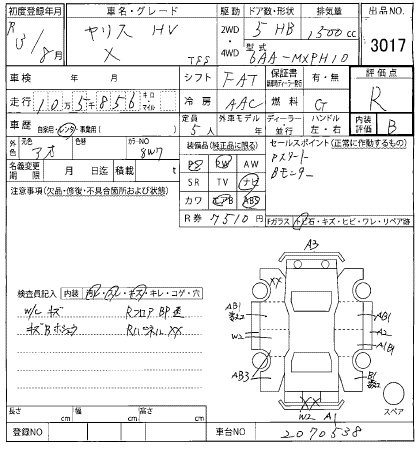 初度登録年月 車名・グレード 駆動 ドア数・形状 排気量 出品NO.
R3/8月 ヤリス HV 2WD 5 HB 1500cc 3017
X TSS 4WD 型式 6AA-MXPH10
車検 年 月 シフト FAT 保証書 有・無 評価点
走行 10万5千856 キロ マイル 冷房 AAC 燃料 G R
車歴 自家用・レンタ・事業用( ) 定員 5人 外車モデル 年 ディーラー 並行 ハンドル 左・右 内装評価 B
外色 元色 アオ 色替 カラーNO 8W7
装備品 (純正品に限る) セールスポイント (正常に作動するもの)
PS PW AW Pスタート
名義変更期限 月 日迄 積載 t SR TV ナビ Bモニター
注意事項 (欠品・修復・不具合箇所および状態) カワ エアB ABS
R券 7510円 Fガラス トビ石・キズ・ヒビ・ワレ・リペア跡
A3
XX
検査員記入 内装 汚レ・スレ・キズ・キレ・コゲ・穴
W/C キズ RフロアBP歪
キズBホシュウ Rパネル XX
AB1
W2
AB3
AB1
A2
A1B1
B1
XX
W2 A1
スペア
長さ cm 幅 cm 高さ cm
登録NO 車台NO 2070538